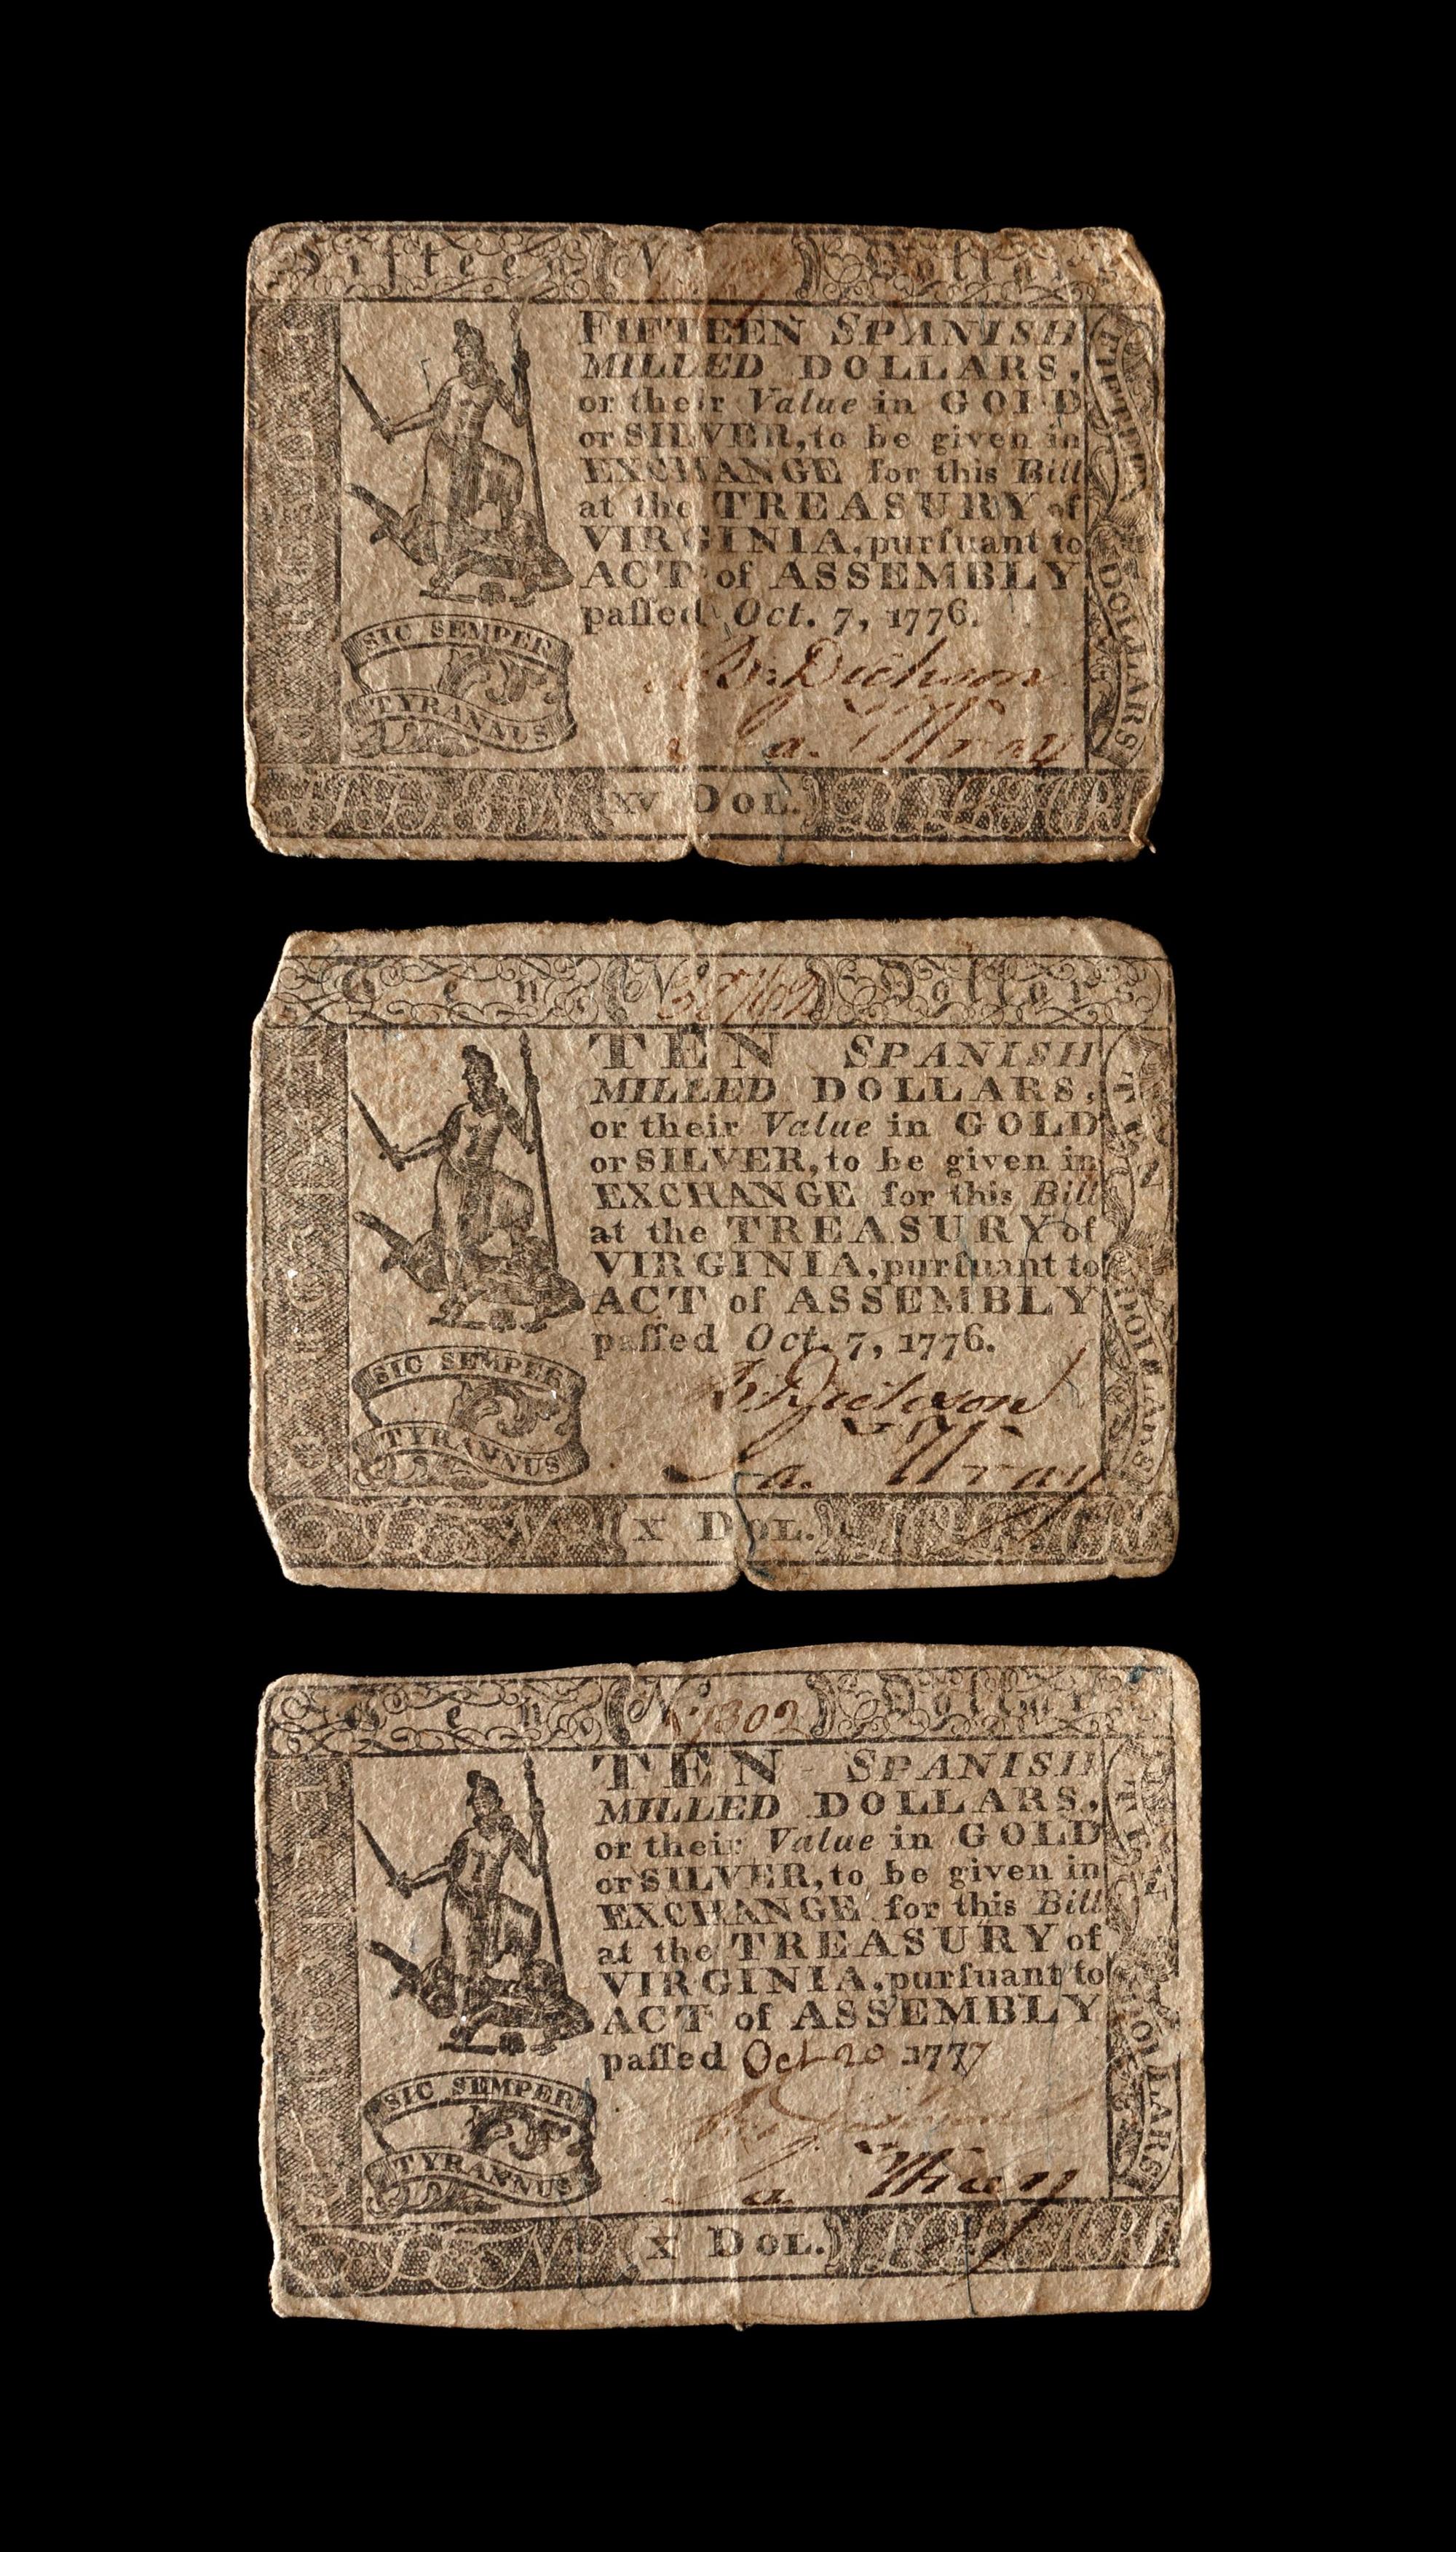 Fifteen N° Dollars
FIFTEEN SPANISH
MILLED DOLLARS,
or their Value in GOLD
or SILVER, to be given in
EXCHANGE for this Bill
at the TREASURY of
VIRGINIA, purſuant to
ACT of ASSEMBLY
paſſed Oct. 7, 1776.
SIC SEMPER
TYRANNUS
B. Dickson
Ja. Wray
FIFTEEN DOLLARS
XV DOL.
Ten N° Dollars
TEN SPANISH
MILLED DOLLARS,
or their Value in GOLD
or SILVER, to be given in
EXCHANGE for this Bill
at the TREASURY of
VIRGINIA, purſuant to
ACT of ASSEMBLY
paſſed Oct. 7, 1776.
SIC SEMPER
TYRANNUS
B. Dickson
Ja. Wray
TEN DOLLARS
TEN X DOL. DOLLARS
Ten N° Dollars
TEN SPANISH
MILLED DOLLARS,
or their Value in GOLD
or SILVER, to be given in
EXCHANGE for this Bill
at the TREASURY of
VIRGINIA, purſuant to
ACT of ASSEMBLY
paſſed Oct 20 1777
SIC SEMPER
TYRANNUS
Ja. Wray
TEN DOLLARS
TEN X DOL. DOLLARS